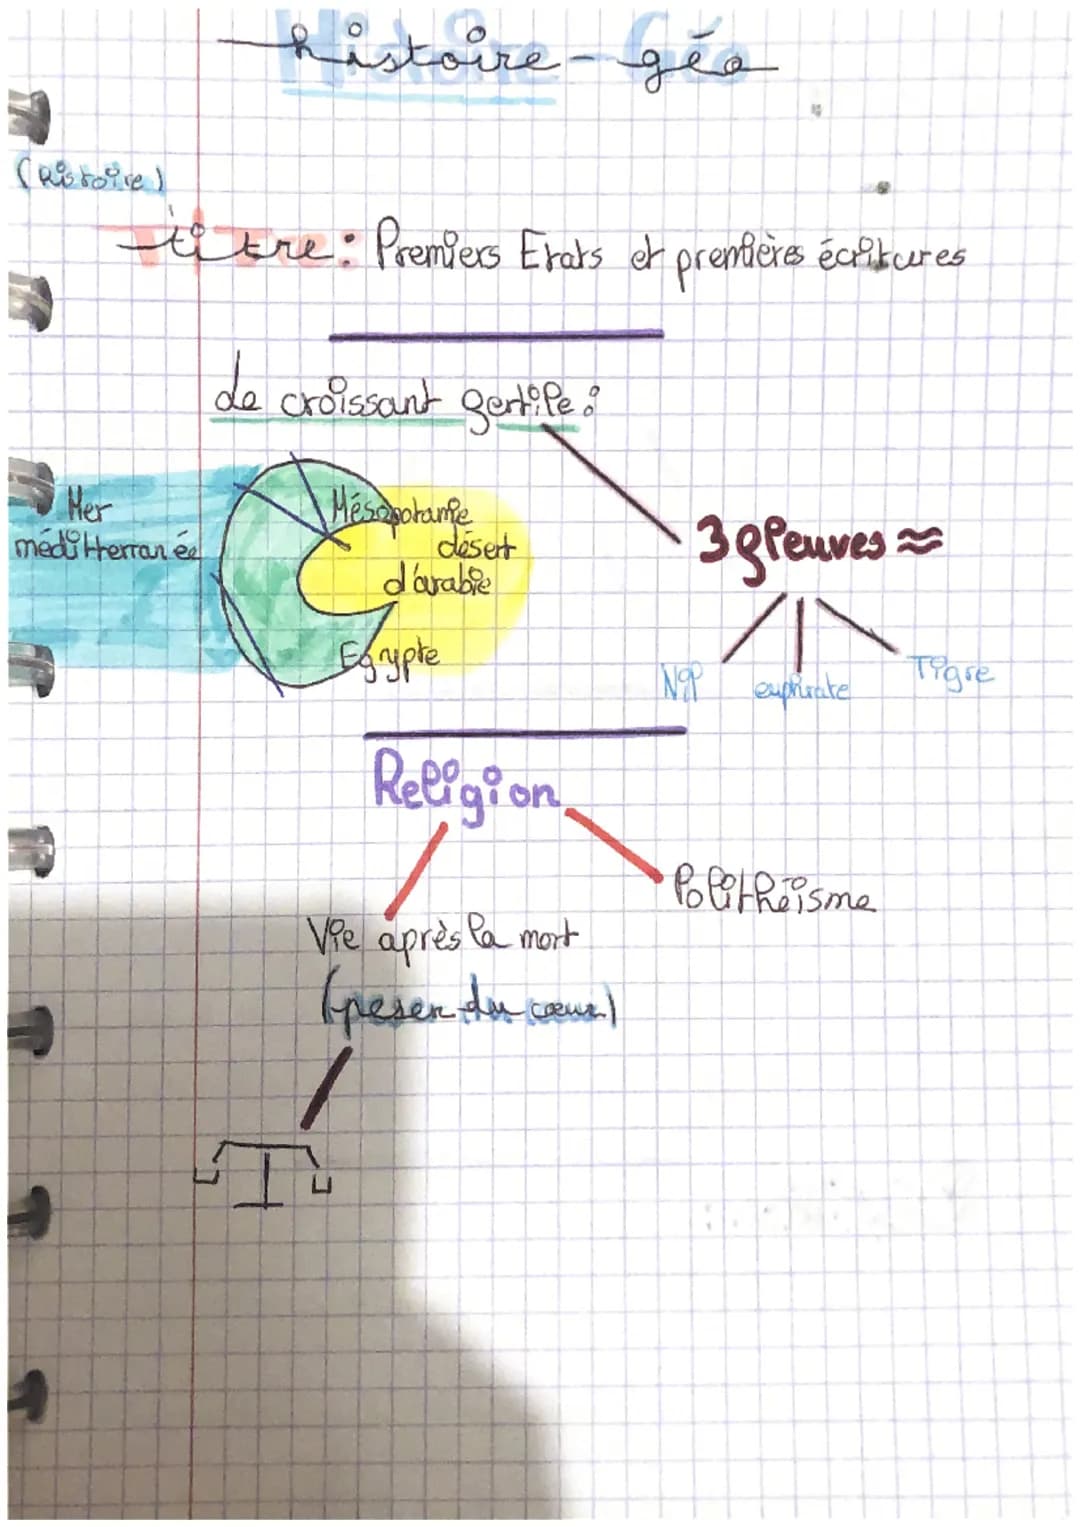 histoire-géo
(histoire)
titre: Premiers Etats et premières écritures
Le croissant fertile:
Mer
méditterranée
Mésopotamie
désert
d'arabie
Egypte
3 fleuves ≈
Nil
euphrate
Tigre
Religion
Polithéisme
Vie après la mort
(peser du cœur)